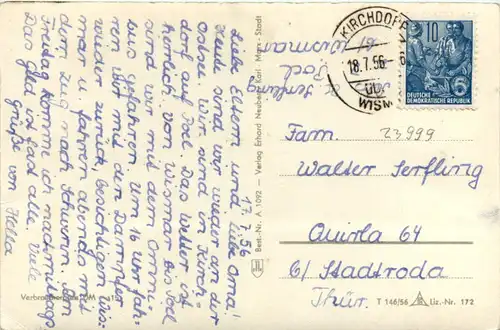 17.7.56
Liebe Eltern und liebe Oma!
Heute sind wir wieder an der
Ostsee. Wir sind in Kirch-
dorf auf Poel. Das Wetter ist
herrlich. Von Wismar bis Poel
sind wir mit dem Omni-
bus gefahren. Um 16 Uhr fah-
ren wir mit den Dampfer
wieder zurück, besichtigen Wis-
mar. fahren abends
dem Zug nach Schwerin. Am
Freitag komme ich nachmittags
Das Geld ist fast alle. Viele
Grüße von Helka
Verbraucherpreis DM
Best.-Nr. A 1092 — Verlag Erhard Neubert, Karl-Marx-Stadt
KIRCHDORF
18.7.56
WISM
10
6
DEUTSCHE
DEMOKRATISCHE REPUBLIK
Poel
Wismar
Fam. 23999
Walter Serfling
Quirla 64
b/ Stadtroda
Thür.
T 146/56 Liz.-Nr. 172